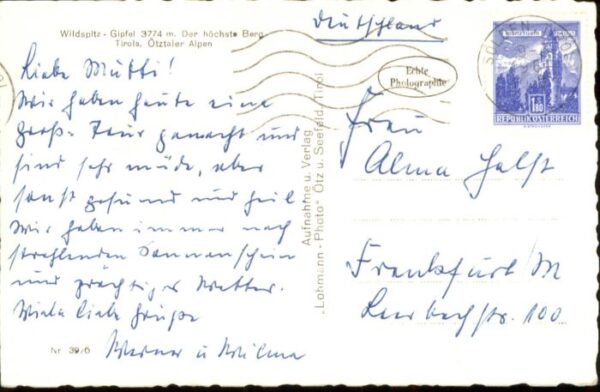 Wildspitz - Gipfel 3774 m. Der höchste Berg
Tirols, Ötztaler Alpen
Liebe Mutti!
Wir haben heute eine
große Tour gemacht und
sind sehr müde, aber
sonst gesund und heil
Wir haben immer noch
strahlenden Sonnenschein
und prächtiges Wetter.
Viele liebe Grüße
Werner u Wilma
Nr. 39/6
Aufnahme u. Verlag
„Lohmann - Photo" Ötz u. Seefeld, Tirol
Deutschland
Echte
Photographie
1.80
REPUBLIK ÖSTERREICH
Frau
Alma Helft
Frankfurt/M
Leerbachstr. 100